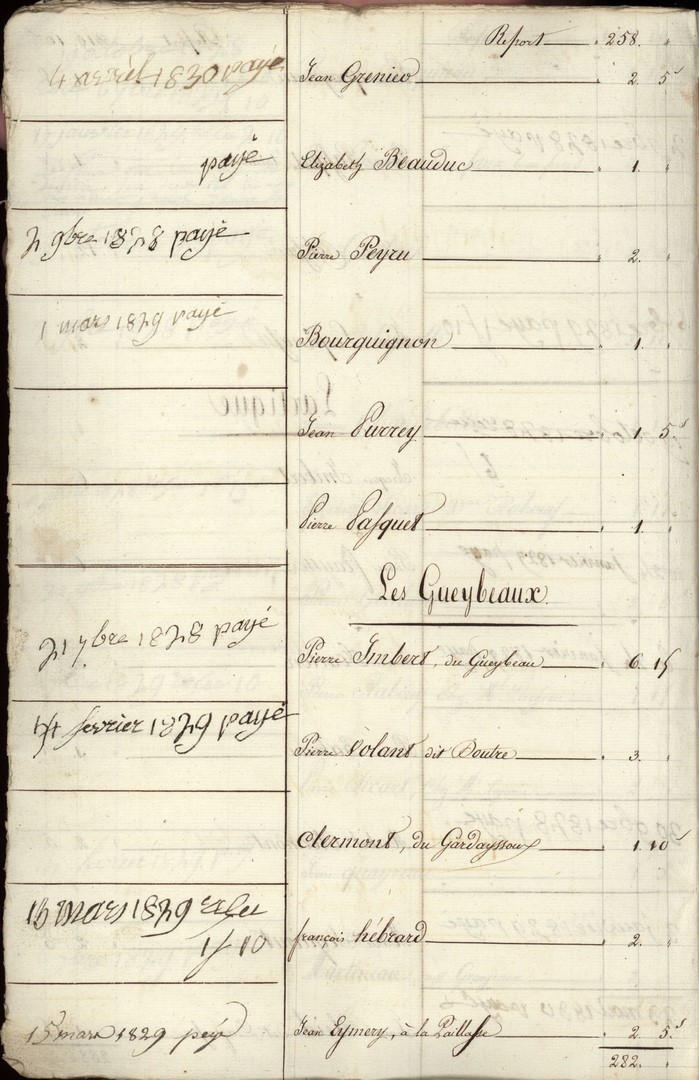 Report 258. "
4 avril 1830 payé Jean Grenier 2. 5ˢ
payé Elizabeth Beauduc 1. "
2 9bre 1828 payé Pierre Peyru 2. "
1 mars 1829 payé Bourguignon 1. "
Jean Purrey 1. 5ˢ
Pierre Pasquet 1. "
Les Gueybeaux.
21 7bre 1828 payé Pierre Imbert, du Gueybeau 6. 15
14 fevrier 1829 payé Pierre Volant dit Doutre 3. "
Clermont, du Gardayssoux 1. 10ˢ
16 mars 1829 1 10 françois hébrard 2. "
15 mars 1829 peyé Jean Eymery, à la Paillasse 2. 5ˢ
282. "